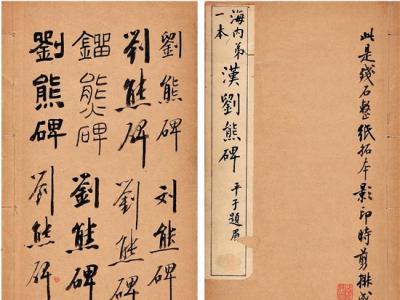 劉熊碑
劉熊碑
鎦熊碑
劉熊碑
刘熊碑
劉熊碑
劉熊碑
劉熊碑
此是殘石整紙拓本影印時剪排成
海内弟一本
漢劉熊碑
平子題眉